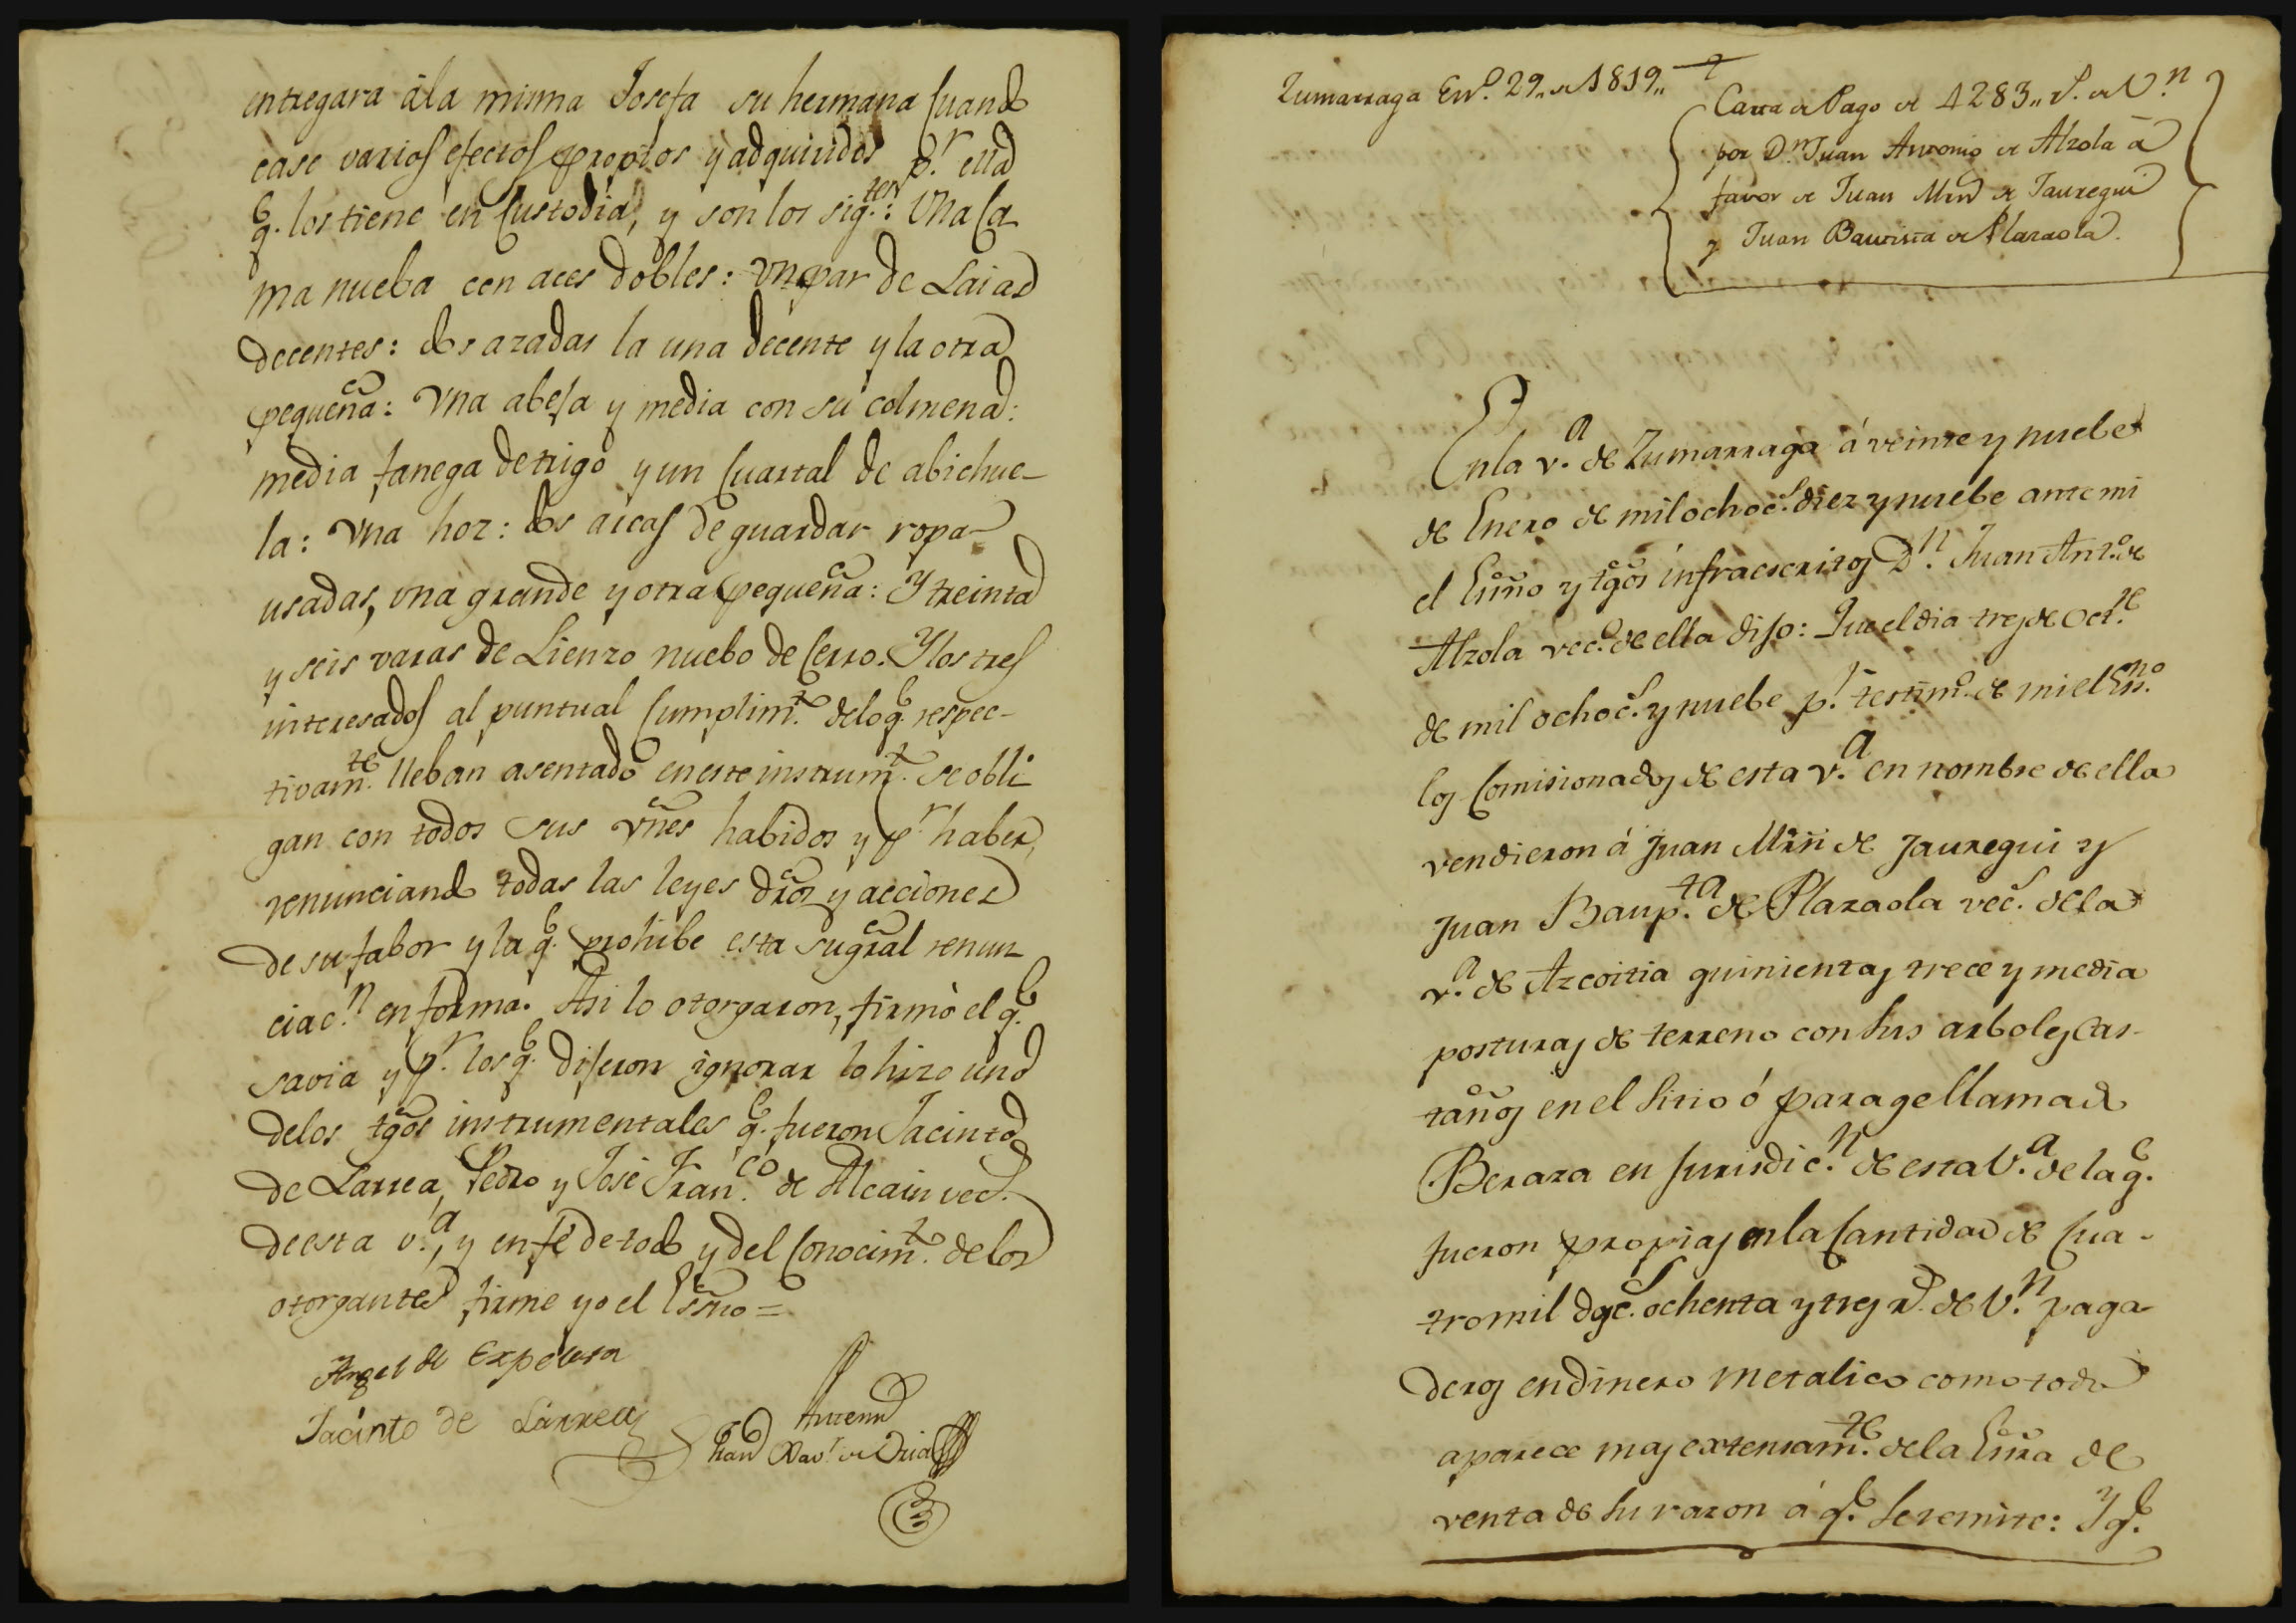 entregara á la misma Josefa su hermana cuando
case varios efectos propios y adquiridos p.r ella
q.e los tiene en custodia, y son los sig.tes: Una ca
ma nueba con aces dobles: un par de Laias
decentes: dos azadas la una decente y la otra
pequeña: Una abeja y media con su colmena:
media fanega de trigo y un cuartal de abichue-
la: Una hoz: dos arcas de guardar ropa
usadas, una grande y otra pequeña: Y treinta
y seis varas de Lienzo nuebo de cerro. Y los tres
interesados al puntual cumplim.to de lo q.e respec-
tivam.te lleban asentado en este instrum.to se obli
gan con todos sus vñes habidos y p.r haber,
renunciando todas las leyes dros y acciones
de su fabor y la q.e prohibe esta su gral renun
ciac.n en forma. Asi lo otorgaron, firmó el q.e
savia y p.r los q.e dijeron ignorar lo hizo uno
de los tgos instrumentales q.e fueron Jacinto
de Larrea, Pedro y José Fran.co de Alcain vec.s
de esta v.a, y en fé de todo y del conocim.to de los
otorgantes firme yo el Esño =
Angel de Expelosin
Jacinto de Larrea
Antemi
Fran.co Xav.r de Oria
Zumarraga En.o 29,, de 1819,,
Carta de Pago de 4283,, r.s de V.n
por D.n Juan Antonio de Alzola á
favor de Juan Mrn de Jauregui
y Juan Bautista de Plazaola.
En la v.a de Zumarraga á veinte y nuebe
de Enero de mil ochoc.s diez y nuebe ante mi
el Esño y tgos infraescritos D.n Juan Ant.o de
Alzola vec.o de ella dijo: Que el dia tres de Oct.re
de mil ochoc.s y nuebe p.r testim.o de mi el Es.no
los Comisionados de esta v.a en nombre de ella
vendieron á Juan Mrñ de Jauregui y
Juan Baup.ta de Plazaola vec.s de la
v.a de Azcoitia quinientas trece y media
posturas de terreno con sus arboles Cas-
taños en el sitio ó parage llamado
Beraza en Jurisdic.n de esta V.a de la q.e
fueron propias en la Cantidad de Cua-
tro mil dosc.s ochenta y tres r.s de V.n paga
deros en dinero metalico como todo
aparece mas extensam.te de la Esñra de
venta de su razon á q.e se remite: Y q.e